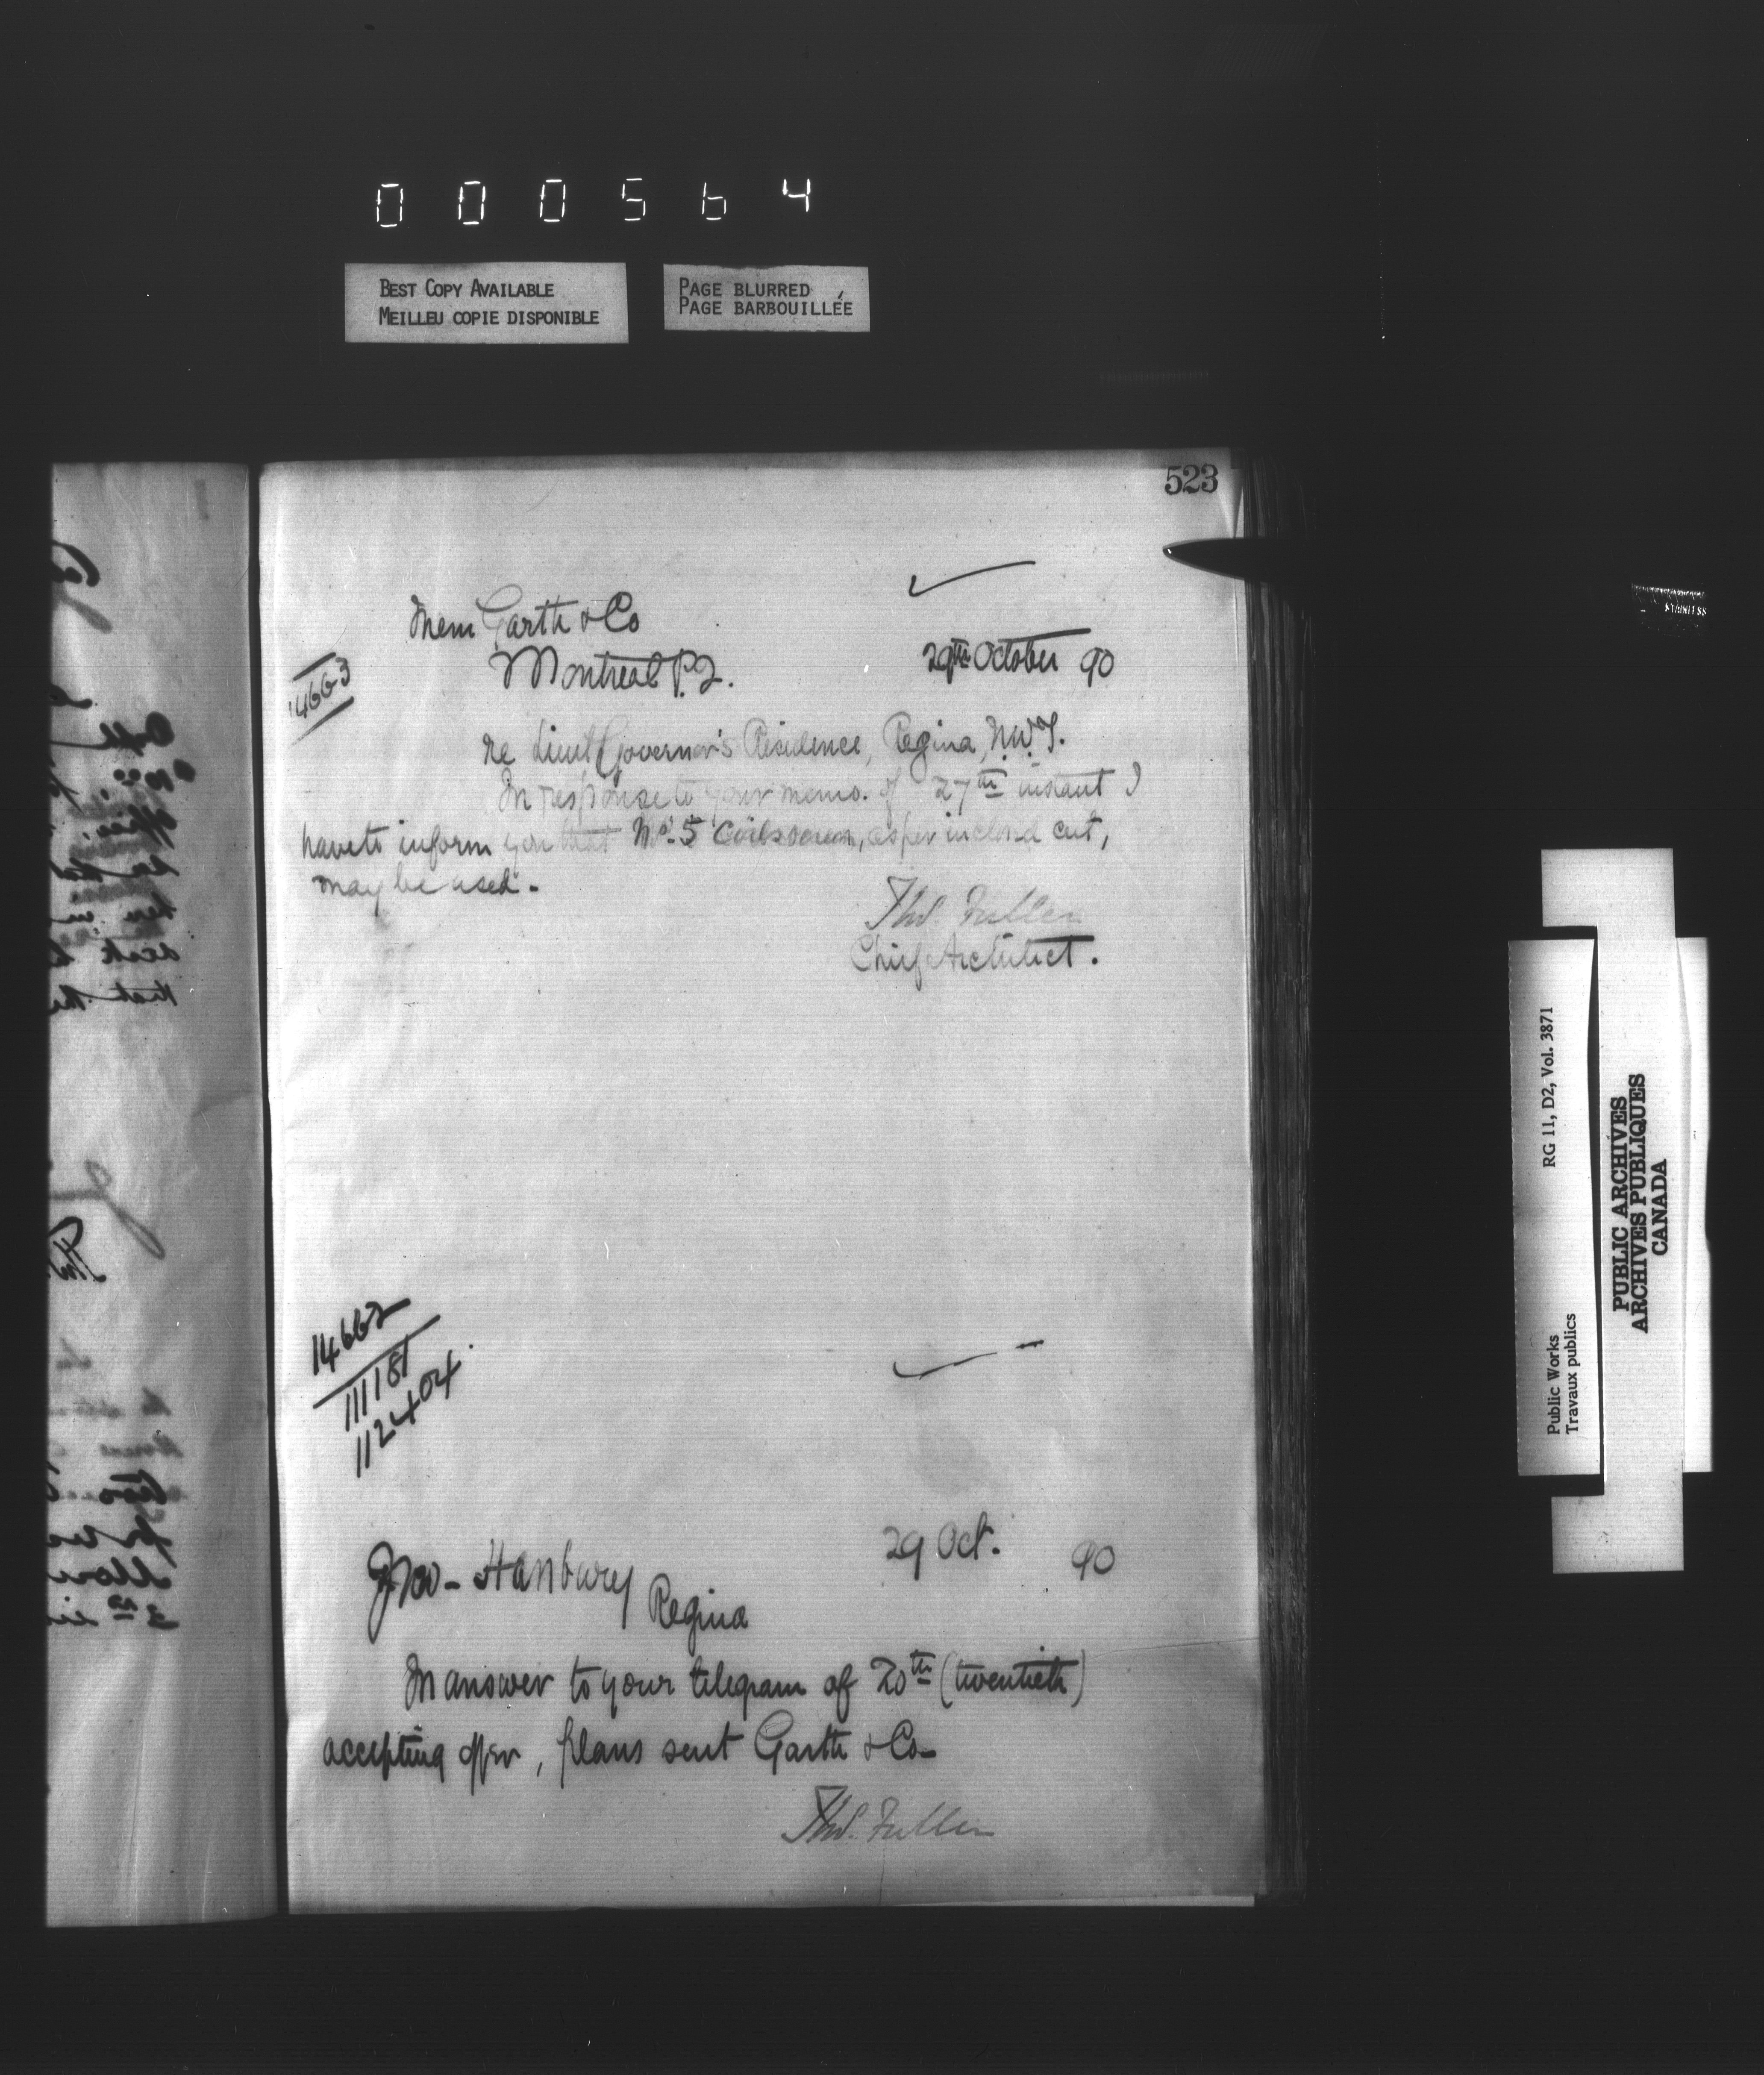 000564
BEST COPY AVAILABLE
MEILLEU COPIE DISPONIBLE
PAGE BLURRED
PAGE BARBOUILLÉE
523
Mem Garth & Co
Montreal P.Q.
29th October 90
14663
re Lieut Governor's Residence, Regina, N.W.T.
In response to your memo. of 27th instant I
have to inform you that No. 5 Coil screen, as per inclosed cut,
may be used.
Thos. Fuller
Chief Architect.
14662
111181
112404
29 Oct. 90
Jno- Hanbury
Regina
In answer to your telegram of 20th (twentieth)
accepting offer, plans sent Garth & Co-
Thos. Fuller
Public Works
Travaux publics
RG 11, D2, Vol. 3871
PUBLIC ARCHIVES
ARCHIVES PUBLIQUES
CANADA